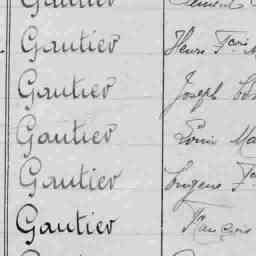 Gautier
Gautier Henri Fçois
Gautier Joseph
Gautier Louis Ma
Gautier Eugène F
Gautier François